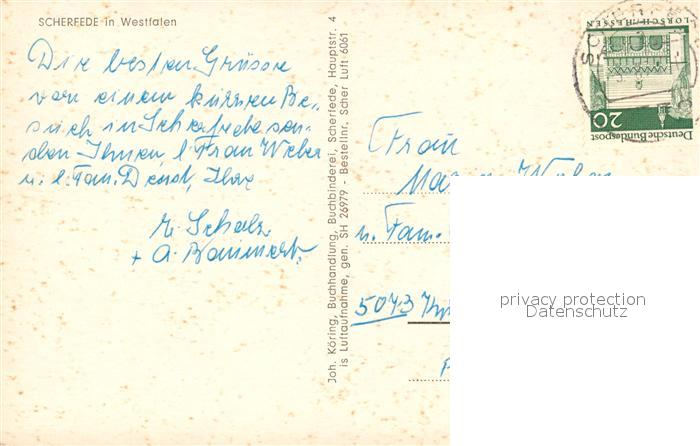 SCHERFEDE in Westfalen
Die besten Grüsse
von einem kurzen Be-
such in Scherfede sen-
den Ihnen, l. Frau Weber
u. l. Fam. Ihre
+ A.
Joh. Köring, Buchhandlung, Buchbinderei, Scherfede, Hauptstr. 4
is Luftaufnahme, gen. SH 26979 - Bestellnr. Scher Luft 6061
LORSCH/HESSEN
20
Deutsche Bundespost
Frau
u. Fam.
5073
privacy protection
Datenschutz